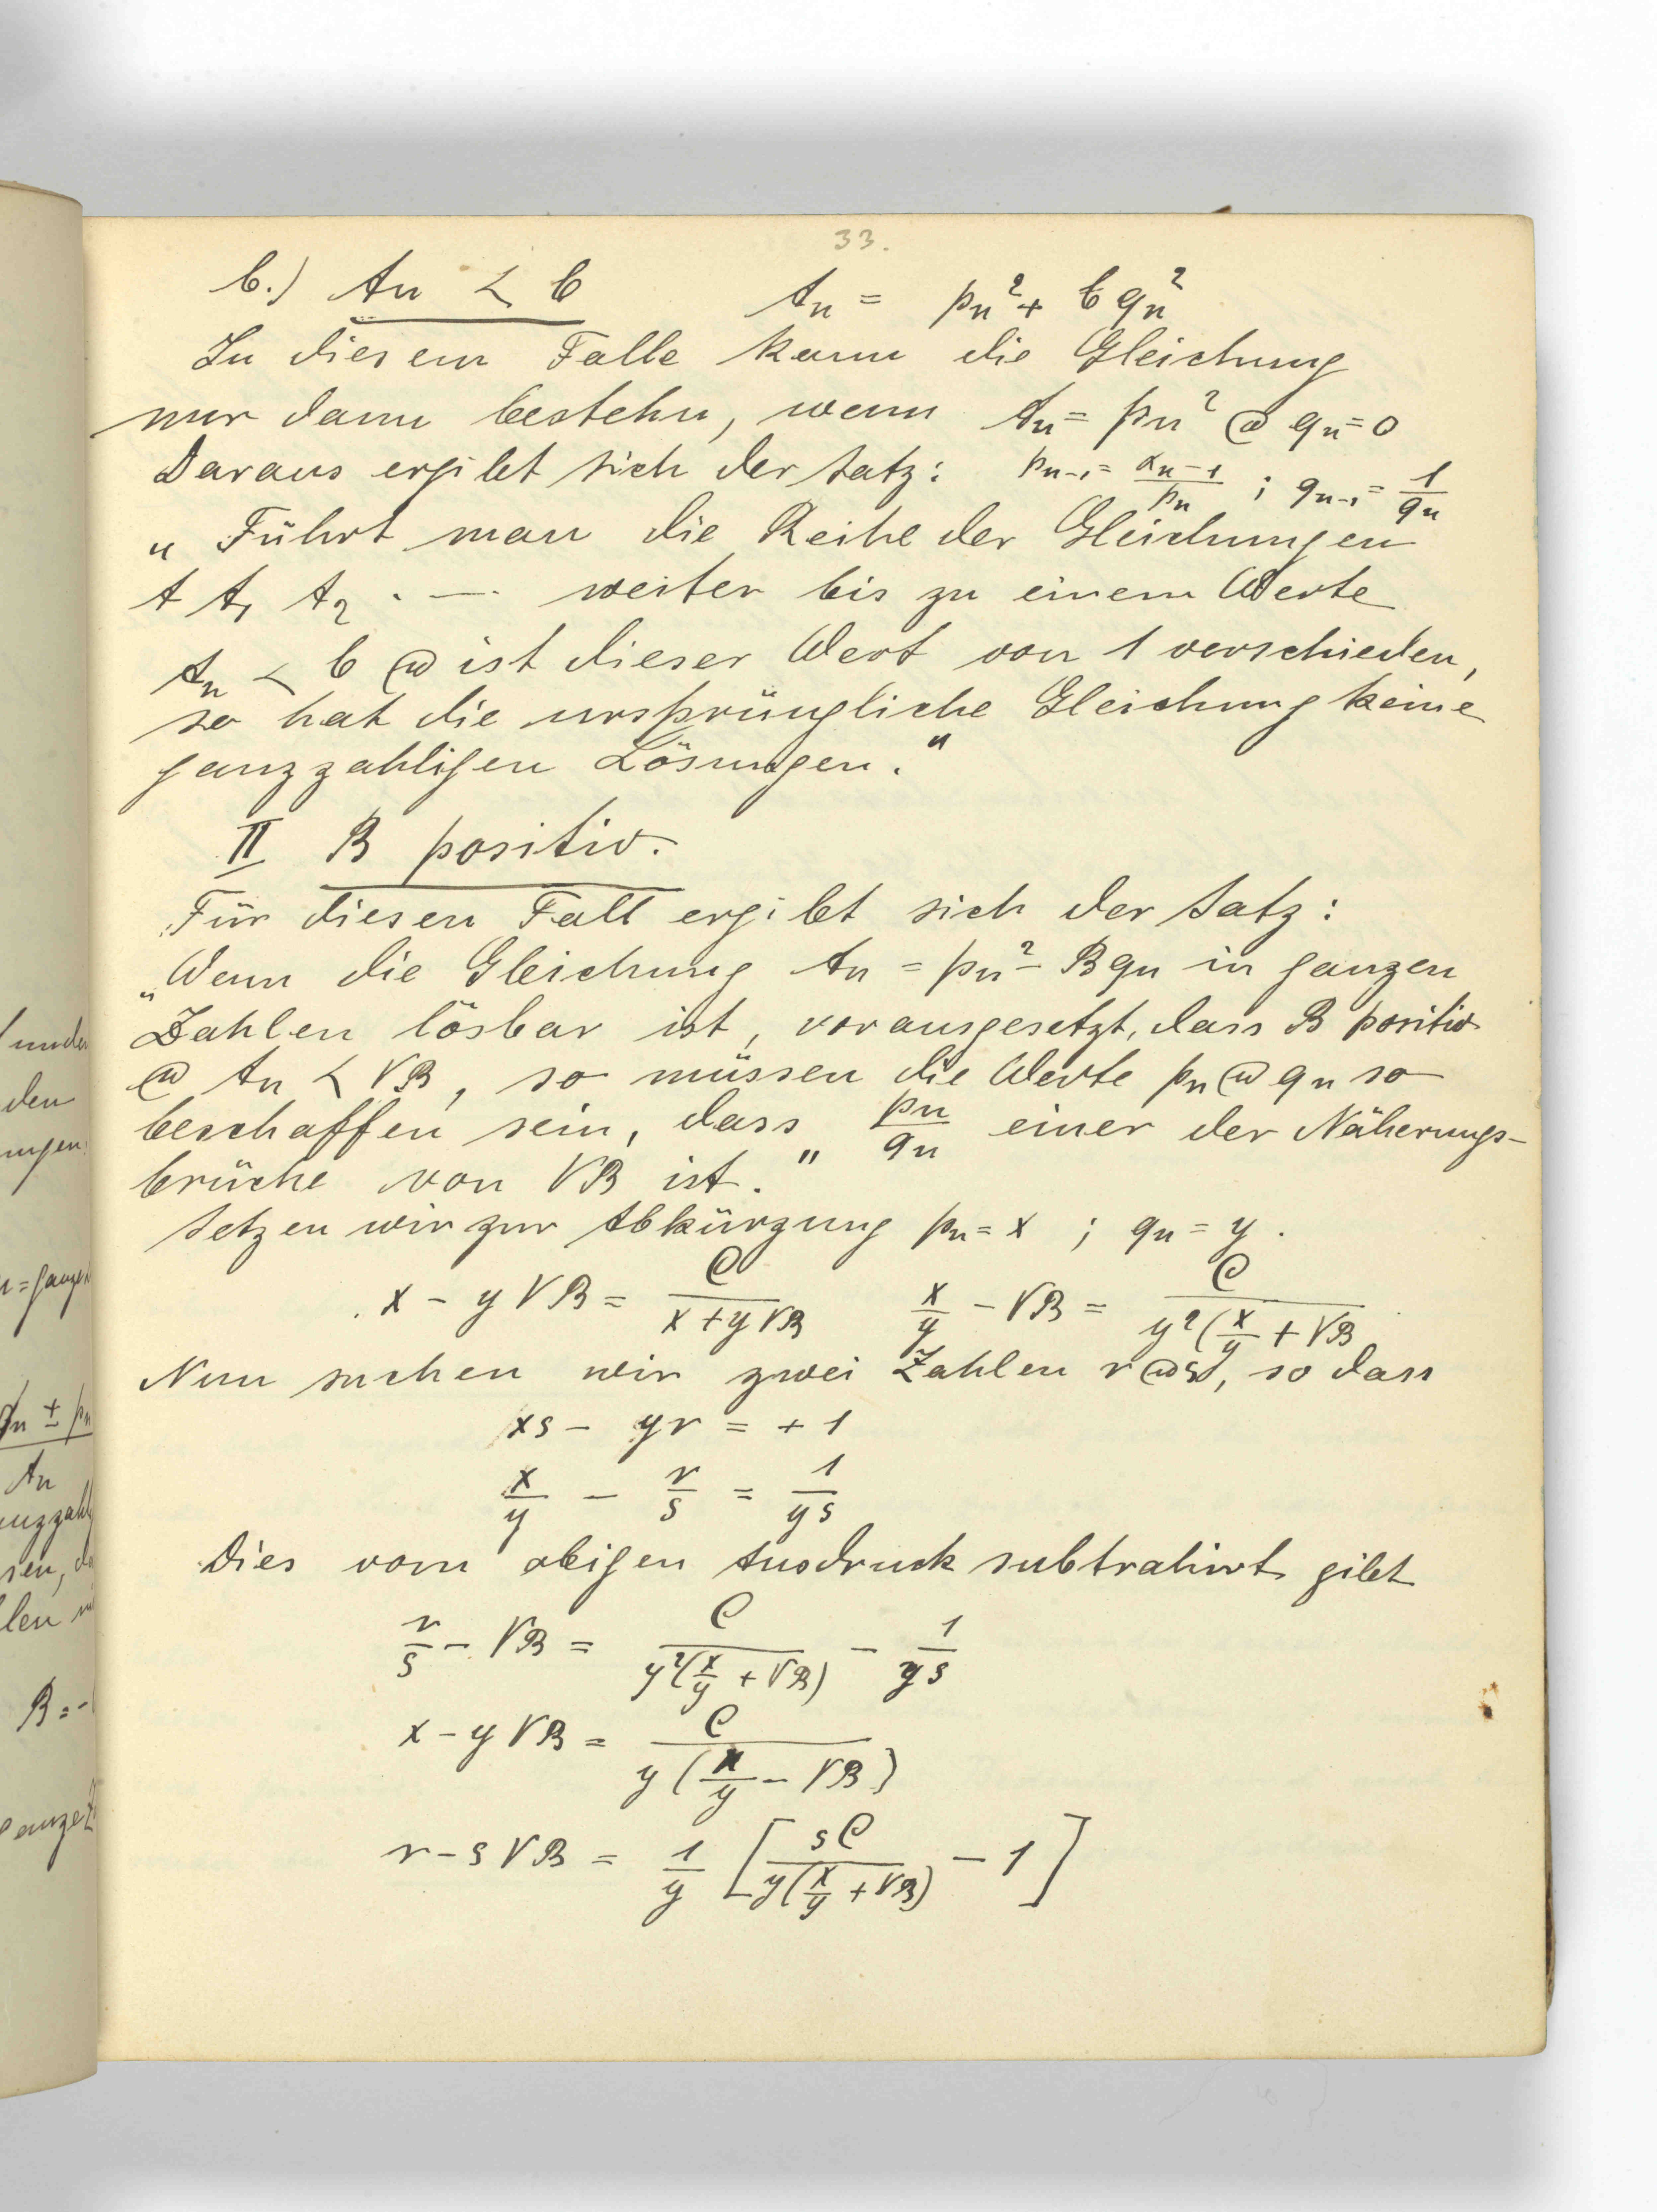 33.
b.) An < b An = pn² + b qn²
In diesem Falle kann die Gleichung
nur dann bestehn, wenn An = pn² @ qn = 0
Daraus ergibt sich der Satz: pn-1 = αn-1/pn ; qn-1 = 1/qn
„Führt man die Reihe der Gleichungen
A A1 A2 . — . weiter bis zu einem Werte
An < b @ ist dieser Wert von 1 verschieden,
so hat die ursprüngliche Gleichung keine
ganzzahligen Lösungen."
II B positiv.
Für diesen Fall ergibt sich der Satz:
„Wenn die Gleichung An = pn² - Bqn in ganzen
Zahlen lösbar ist, vorausgesetzt, dass B positiv
@ An < √B, so müssen die Werte pn @ qn so
beschaffen sein, dass pn/qn einer der Näherungs-
brüche von √B ist."
Setzen wir zur Abkürzung pn = x ; qn = y.
x - y√B = C/(x + y√B) x/y - √B = C/(y²(x/y + √B
Nun suchen wir zwei Zahlen r @ s, so dass
xs - yr = + 1
x/y - r/s = 1/ys
Dies vom obigen Ausdruck subtrahirt gibt
r/s - √B = C/(y²(x/y + √B)) - 1/ys
x - y√B = C/(y(x/y - √B))
r - s√B = 1/y [sC/(y(x/y + √B)) - 1]